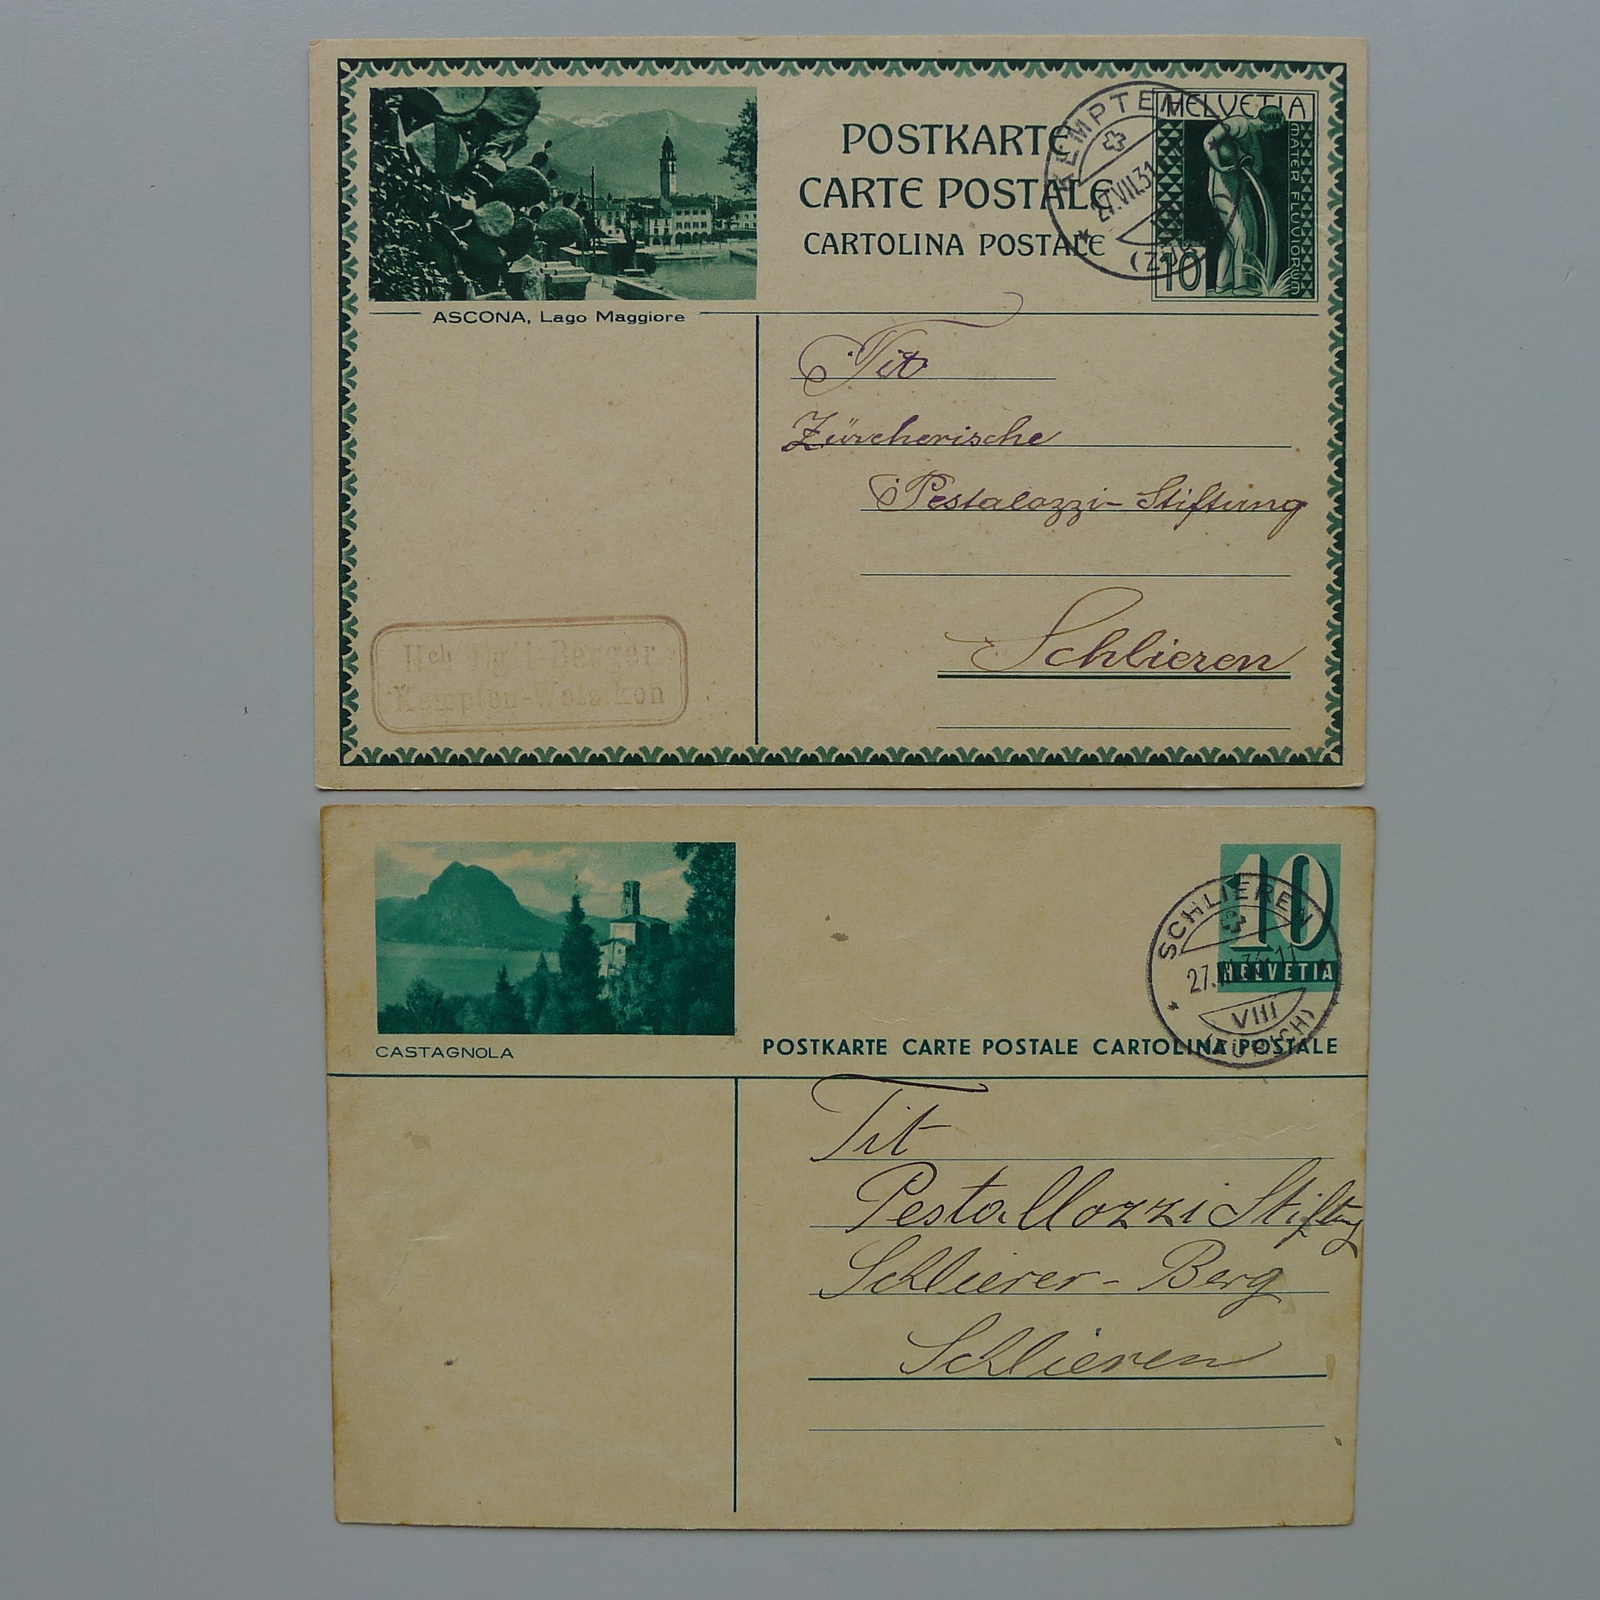 POSTKARTE
CARTE POSTALE
CARTOLINA POSTALE
KEMPTEN
27.VII.31
(ZCH)
HELVETIA
MATER FLUVIORUM
10
ASCONA, Lago Maggiore
Tit
Zürcherische
Pestalozzi-Stiftung
Schlieren
Hch Berger
Kempten-Wetzikon
10
HELVETIA
SCHLIEREN
27.
11
VIII
(ZÜRICH)
CASTAGNOLA
POSTKARTE CARTE POSTALE CARTOLINA POSTALE
Tit
Pestallozzi Stiftung
Schlierer-Berg
Schlieren